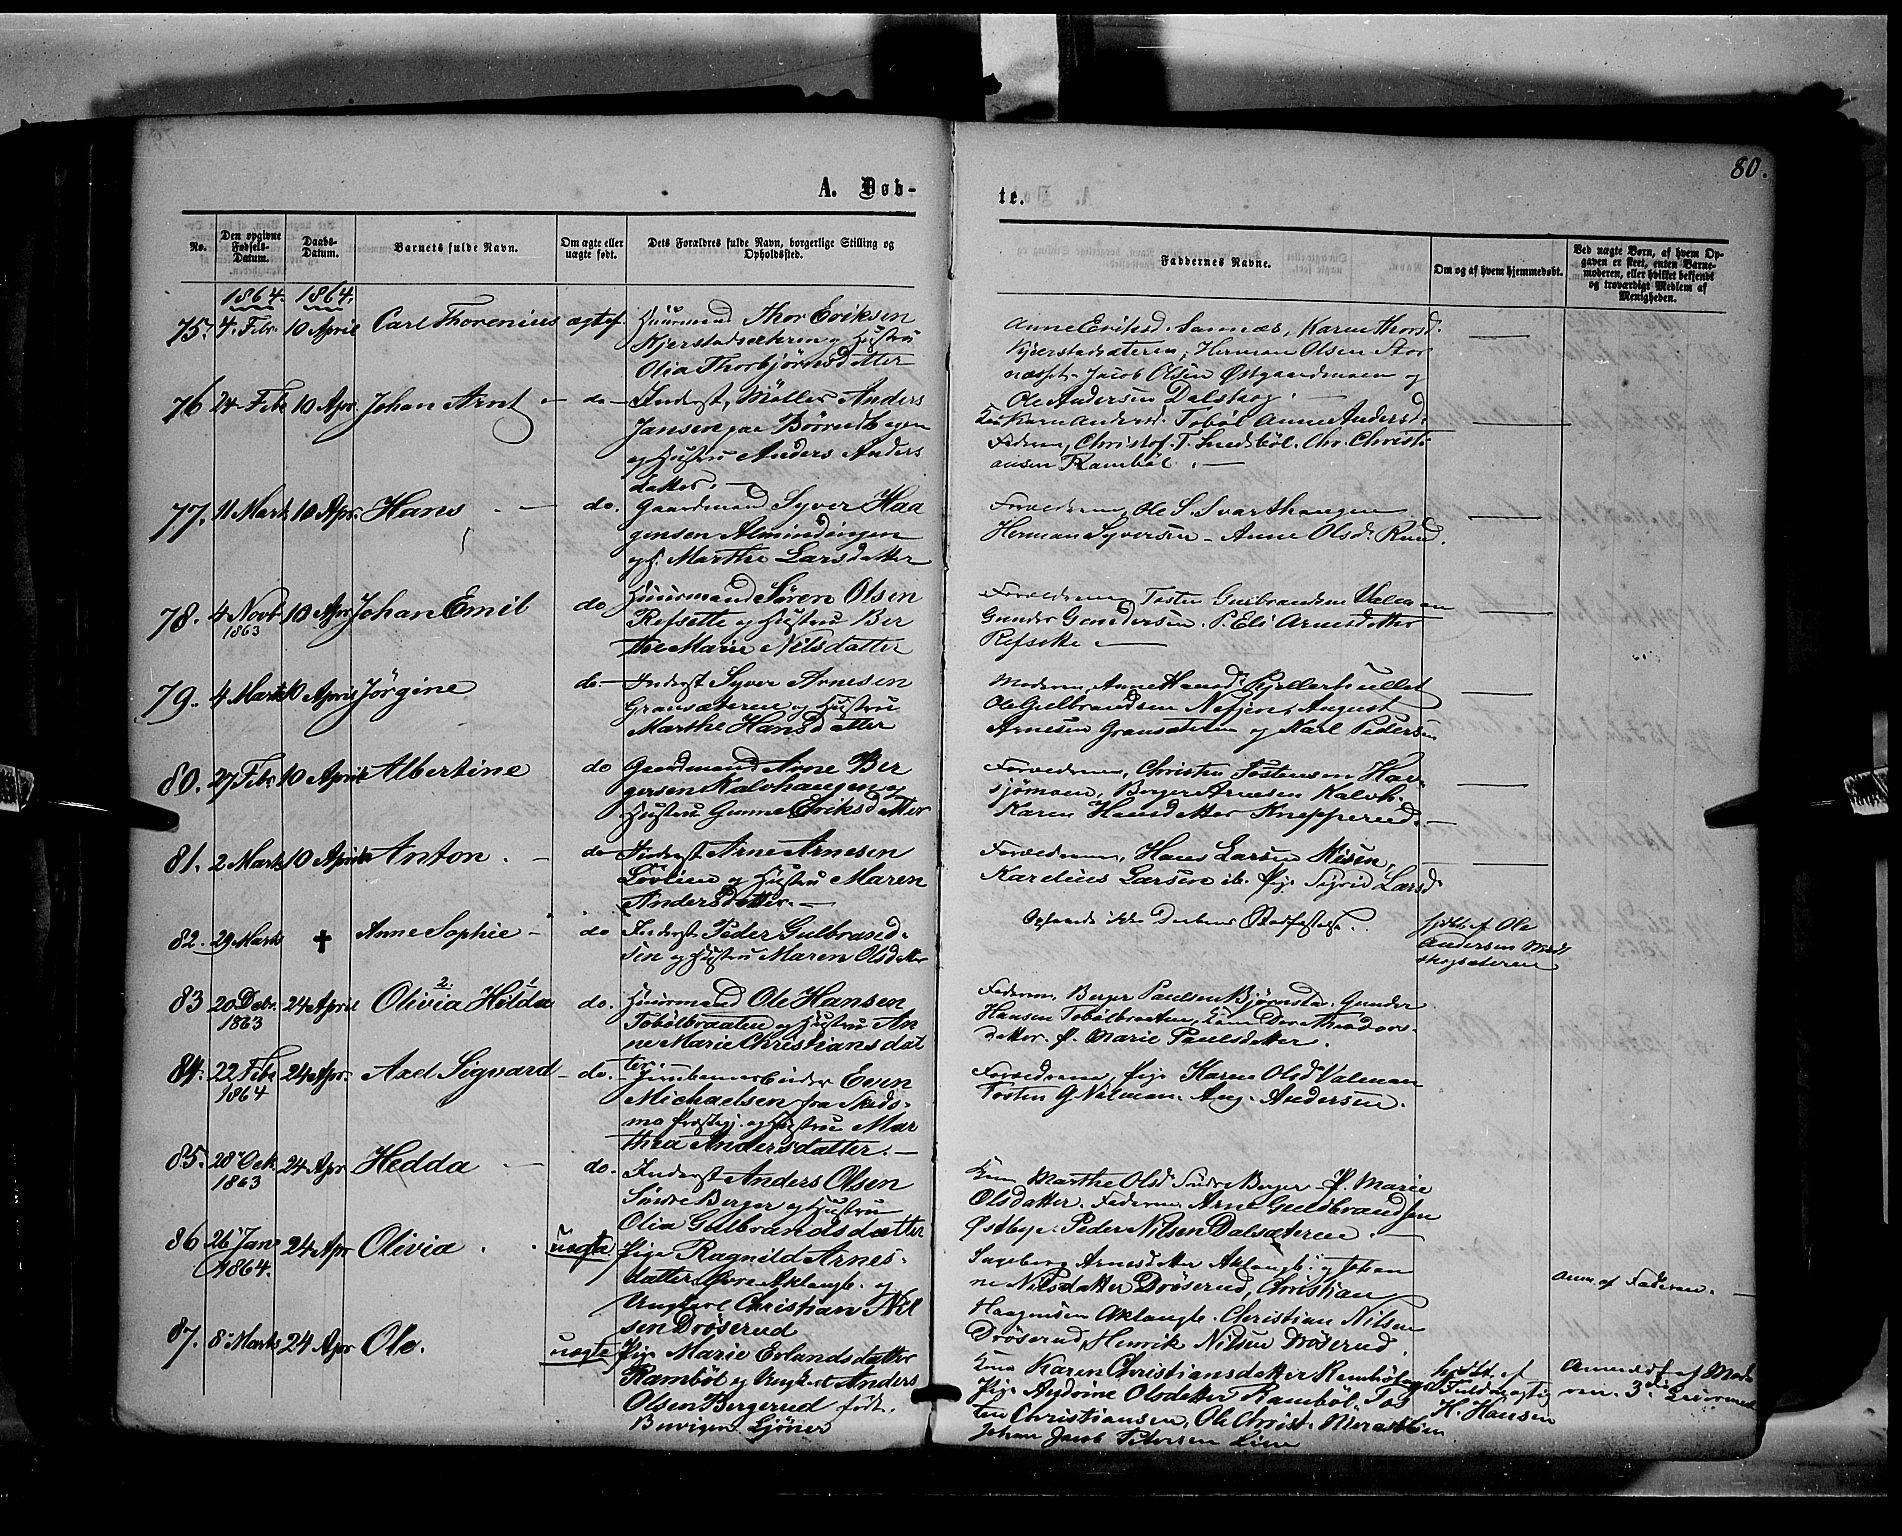 80.
A. Døb-
te.
No.
Den opgivne Fødsels-Datum.
Daabs-Datum.
Barnets fulde Navn.
Om ægte eller uægte født.
Dets Forældres fulde Navn, borgerlige Stilling og Opholdssted.
Faddernes Navne.
Om og af hvem hjemmedøbt.
Ved uægte Børn, af hvem Opgaven er skeet, enten Barnemoderen, eller hvilket bekjendt og troværdigt Medlem af Menigheden.
1864. 1864.
75. 4. Febr. 10 April Carl Thorenius ægtef. Huusmand Thor Eriksen
Kjerstadsæteren og Hustru
Olia Thorbjørnsdatter
Anne Eriksd. Sannæs, Karen Thorsd.
Kjerstadsæteren, Herman Olsen Stor
Jacob Olsen Østgaardmoen og
Ole Andersen Dalskog.
76 24 Febr 10 Apr Johan Arnt - do - Inderst, Møller Anders
Jansen paa Børrud
og Hustru Anders Anders
datter. -
Karen Andersd. Tobøl Anne Andersd.
Faderen, Christof. T. Smedsbøl. Chr. Christi
ansen Rambøl. -
77. 11 Marts 10 Apr. Hans - do. Gaardmand Syver Haa
gensen Almindingen
og H. Marthe Larsdatter
Forældrene, Ole S. Svarthaugen
Herman Syversen - Anne Olsd. Rud.
78. 4 Novb 1863 10 Apr Johan Emil do Huusmand Søren Olsen
Refsette og Hustru Ber
the Marie Nilsdatter
Forældrene Tosten Gulbrandsen Valman
Gunder Gundersen. P. Eli Arnesdatter
Refsette -
79. 4 Marts 10 April Jørgine do. - Inderst Syver Arnesen
Gransæteren og Hustru
Marthe Hansdatter
Moderen, Anne Hansd. Kjellerhullet
Ole Gulbrandsen August
Arnesen Gransæteren og Karl Pedersen
80. 27 Febr 10 April Albertine do Gaardmand Arne Ber
gersen Kalvhaugen og
Hustru Gunne Eriksdatter
Forældrene, Christen Tostensen Hav
sjømoen, Berger Arnesen Kalvh.
Karen Hansdatter Knepperud. -
81. 2 Marts 10 April Anton. - do Inderst Arne Arnesen
Løvlien og Hustru Maren
Andersdatter. -
Forældrene, Hans Larsen Misen,
Karelius Larsen ib. Pige Sigrid Larsd.
82. 29 Marts † Anne Sophie - do Inderst Peder Gulbrand-
sen og Hustru Maren Olsdatter
Opfordr. ikke Daabens Stadfæstelse.
hjdbt. af Ole
Andersen
skogsæteren
83 20 Debr. 1863 24 April Olivia Hilda do. Huusmand Ole Hansen
Tobølbraaten og Hustru An
ne Marie Christiansdat
ter.
Faderen, Berger Paulsen Bjørnstad, Gunder
Hansen Tobølbraaten, Kone Dorthea
datter. P. Marie Paulsdatter.
84. 22 Febr 1864 24 Apr. Axel Sigvard - do. Even
Michaelsen fra Skeds-
mo Præstegj. og Hustru Mar
thea Andersdatter. -
Forældrene, Pige Karen Olsd. Valman
Tosten G. Valman. Aug. Andersen.
85. 28 Oct. 1863 24 Apr Hedda - do. Inderst Anders Olsen
Søndre Berger og Hustru
Olia Gulbrandsdatter
Kone Marthe Olsd. Søndre Berger - P. Marie
Olsdatter. Faderen Arne Guldbrandsen
Østbye. Peder Nilsen Dalsæteren. -
86 26 Jan 1864. 24 Apr Olivia. uægte Pige Ragnild Arnes-
datter Øvre Aklangb. og
Ungkarl Christian Nil
sen Drøserud
Ingeborg Arnesdatter Aklangb. og Johan
ne Nilsdatter Drøserud, Christian
Haagensen Aklangb. Christian Nilsen
Drøserud, Henrik Nilsen Drøserud.
Anm. af Faderen. -
87. 8 Marts 24 Apr Ole. uægte Pige Marie Erlandsdatter
Rambøl og Ungkarl Anders
Olsen Bergerud født.
Kone Karen Christiansdatter Rambøl
Pige Andrine Olsdatter Rambøl. Tos
ten Christiansen, Ole Christ.
Johan Jacob Petersen Lier
hjdbt. af
H. Hansen
Anmeldt af Mode
ren. 3die Leiermaal